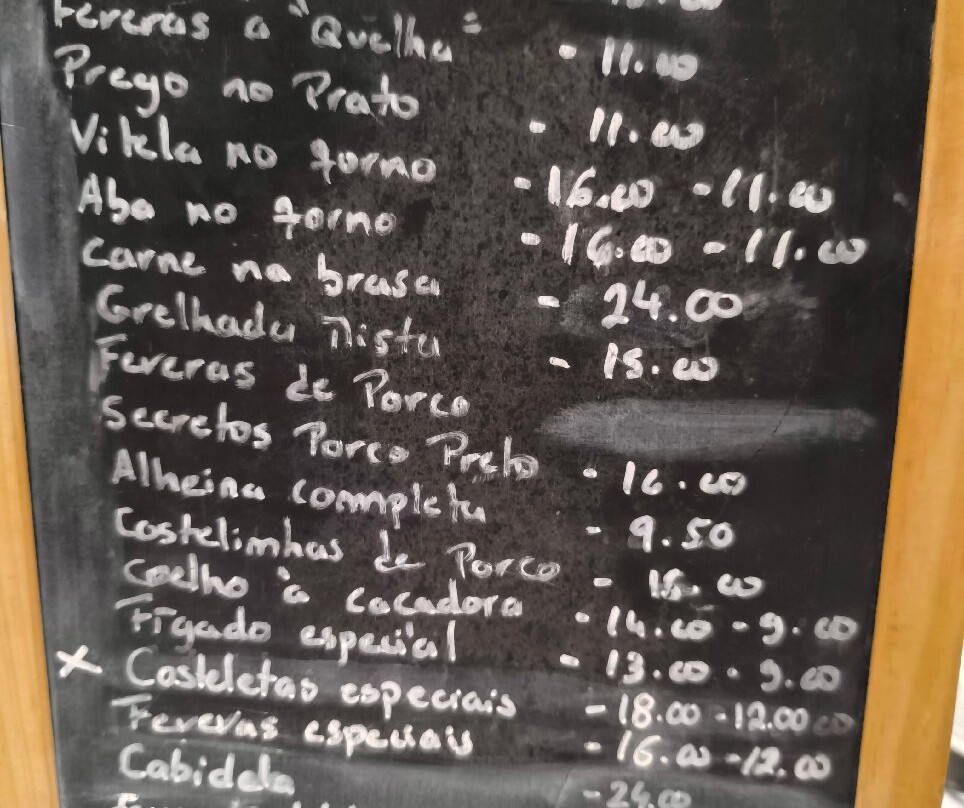 Feveras a "Quelha" - 11.00
Prego no Prato - 11.00
Vitela no forno - 16.00 - 11.00
Aba no forno - 16.00 - 11.00
Carne na brasa - 24.00
Grelhada Mista - 15.00
Feveras de Porco
Secretos Porco Preto - 16.00
Alheira commpleta - 9.50
Costelimhas de Porco - 15.00
Coelho à cacadora - 14.00 - 9.00
Fígado especial - 13.00 - 9.00
X Costeletas especiais - 18.00 - 12.00
Feveras especiais - 16.00 - 12.00
Cabidela - 24.00